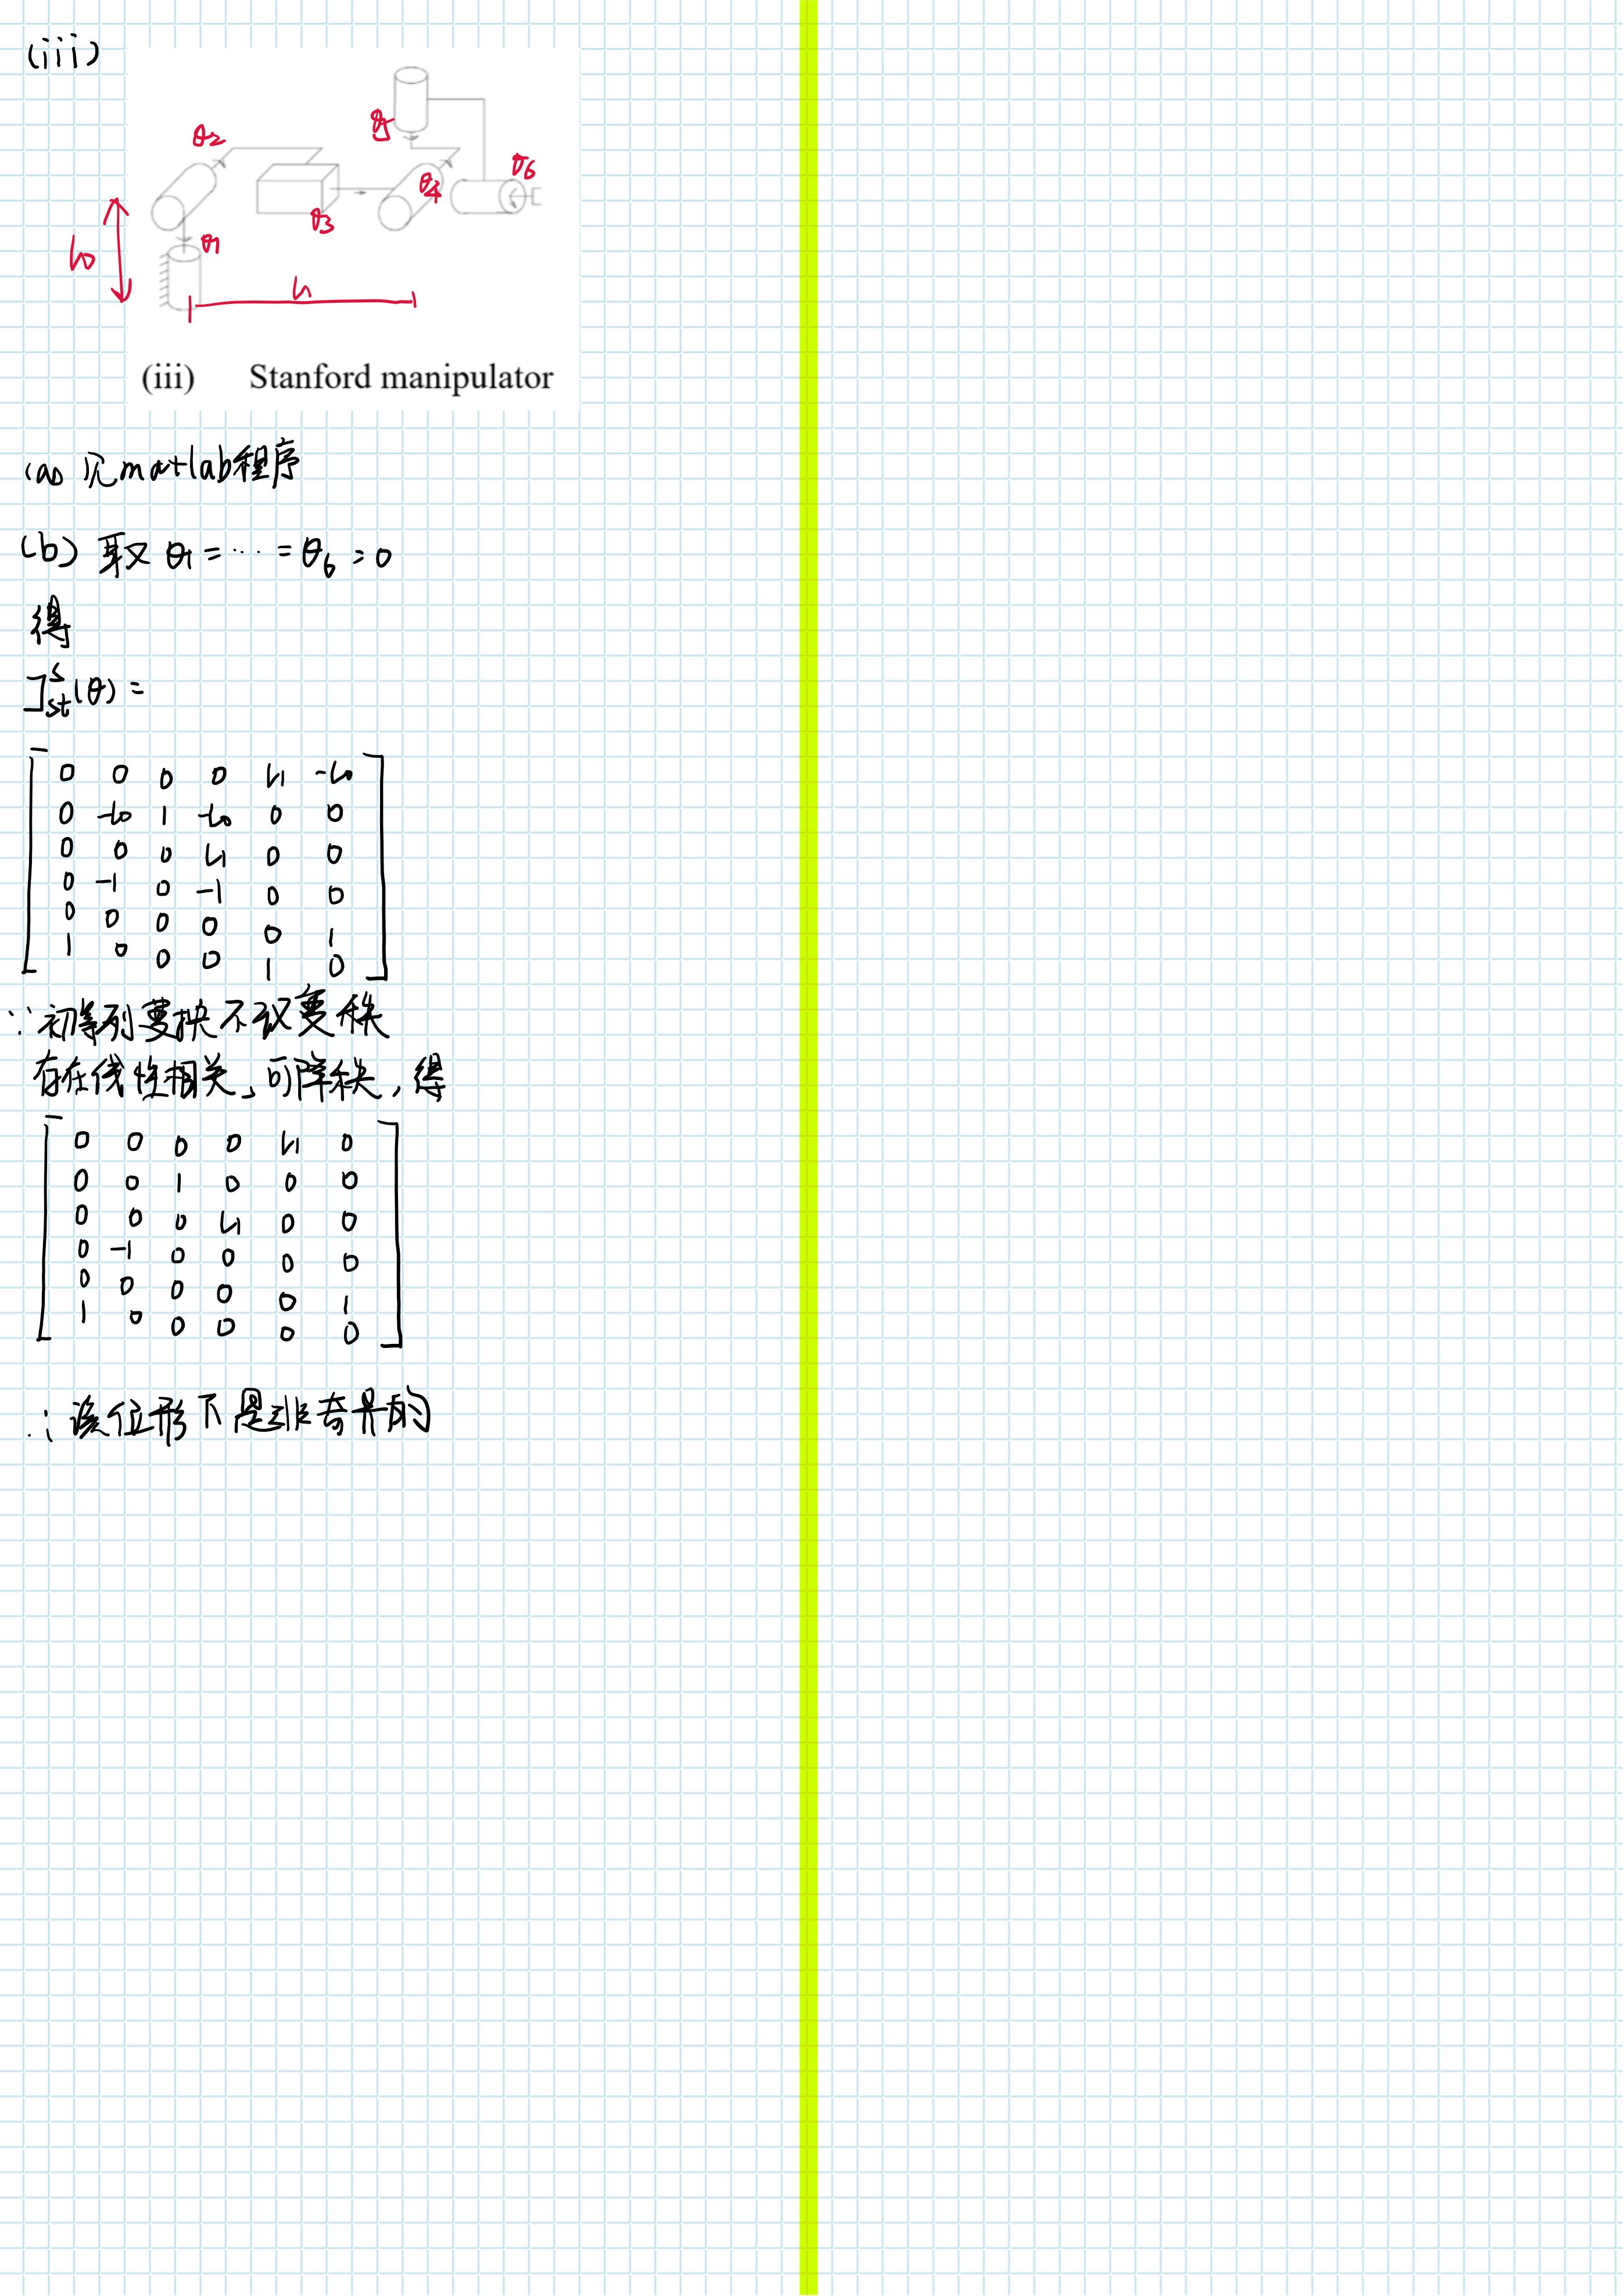 (iii)
θ5
θ2
θ6
θ4
θ3
θ1
l0
l1
(iii) Stanford manipulator
(a) 见matlab程序
(b) 取 θ1 = ⋯ = θ6 = 0
得
J^s_st(θ) =
0 0 0 0 l1 -l0
0 -l0 1 -l0 0 0
0 0 0 l1 0 0
0 -1 0 -1 0 0
0 0 0 0 0 1
1 0 0 0 1 0
∵初等列变换不改变秩
存在线性相关,可降秩,得
0 0 0 0 l1 0
0 0 1 0 0 0
0 0 0 l1 0 0
0 -1 0 0 0 0
0 0 0 0 0 1
1 0 0 0 0 0
∴该位形下是非奇异的